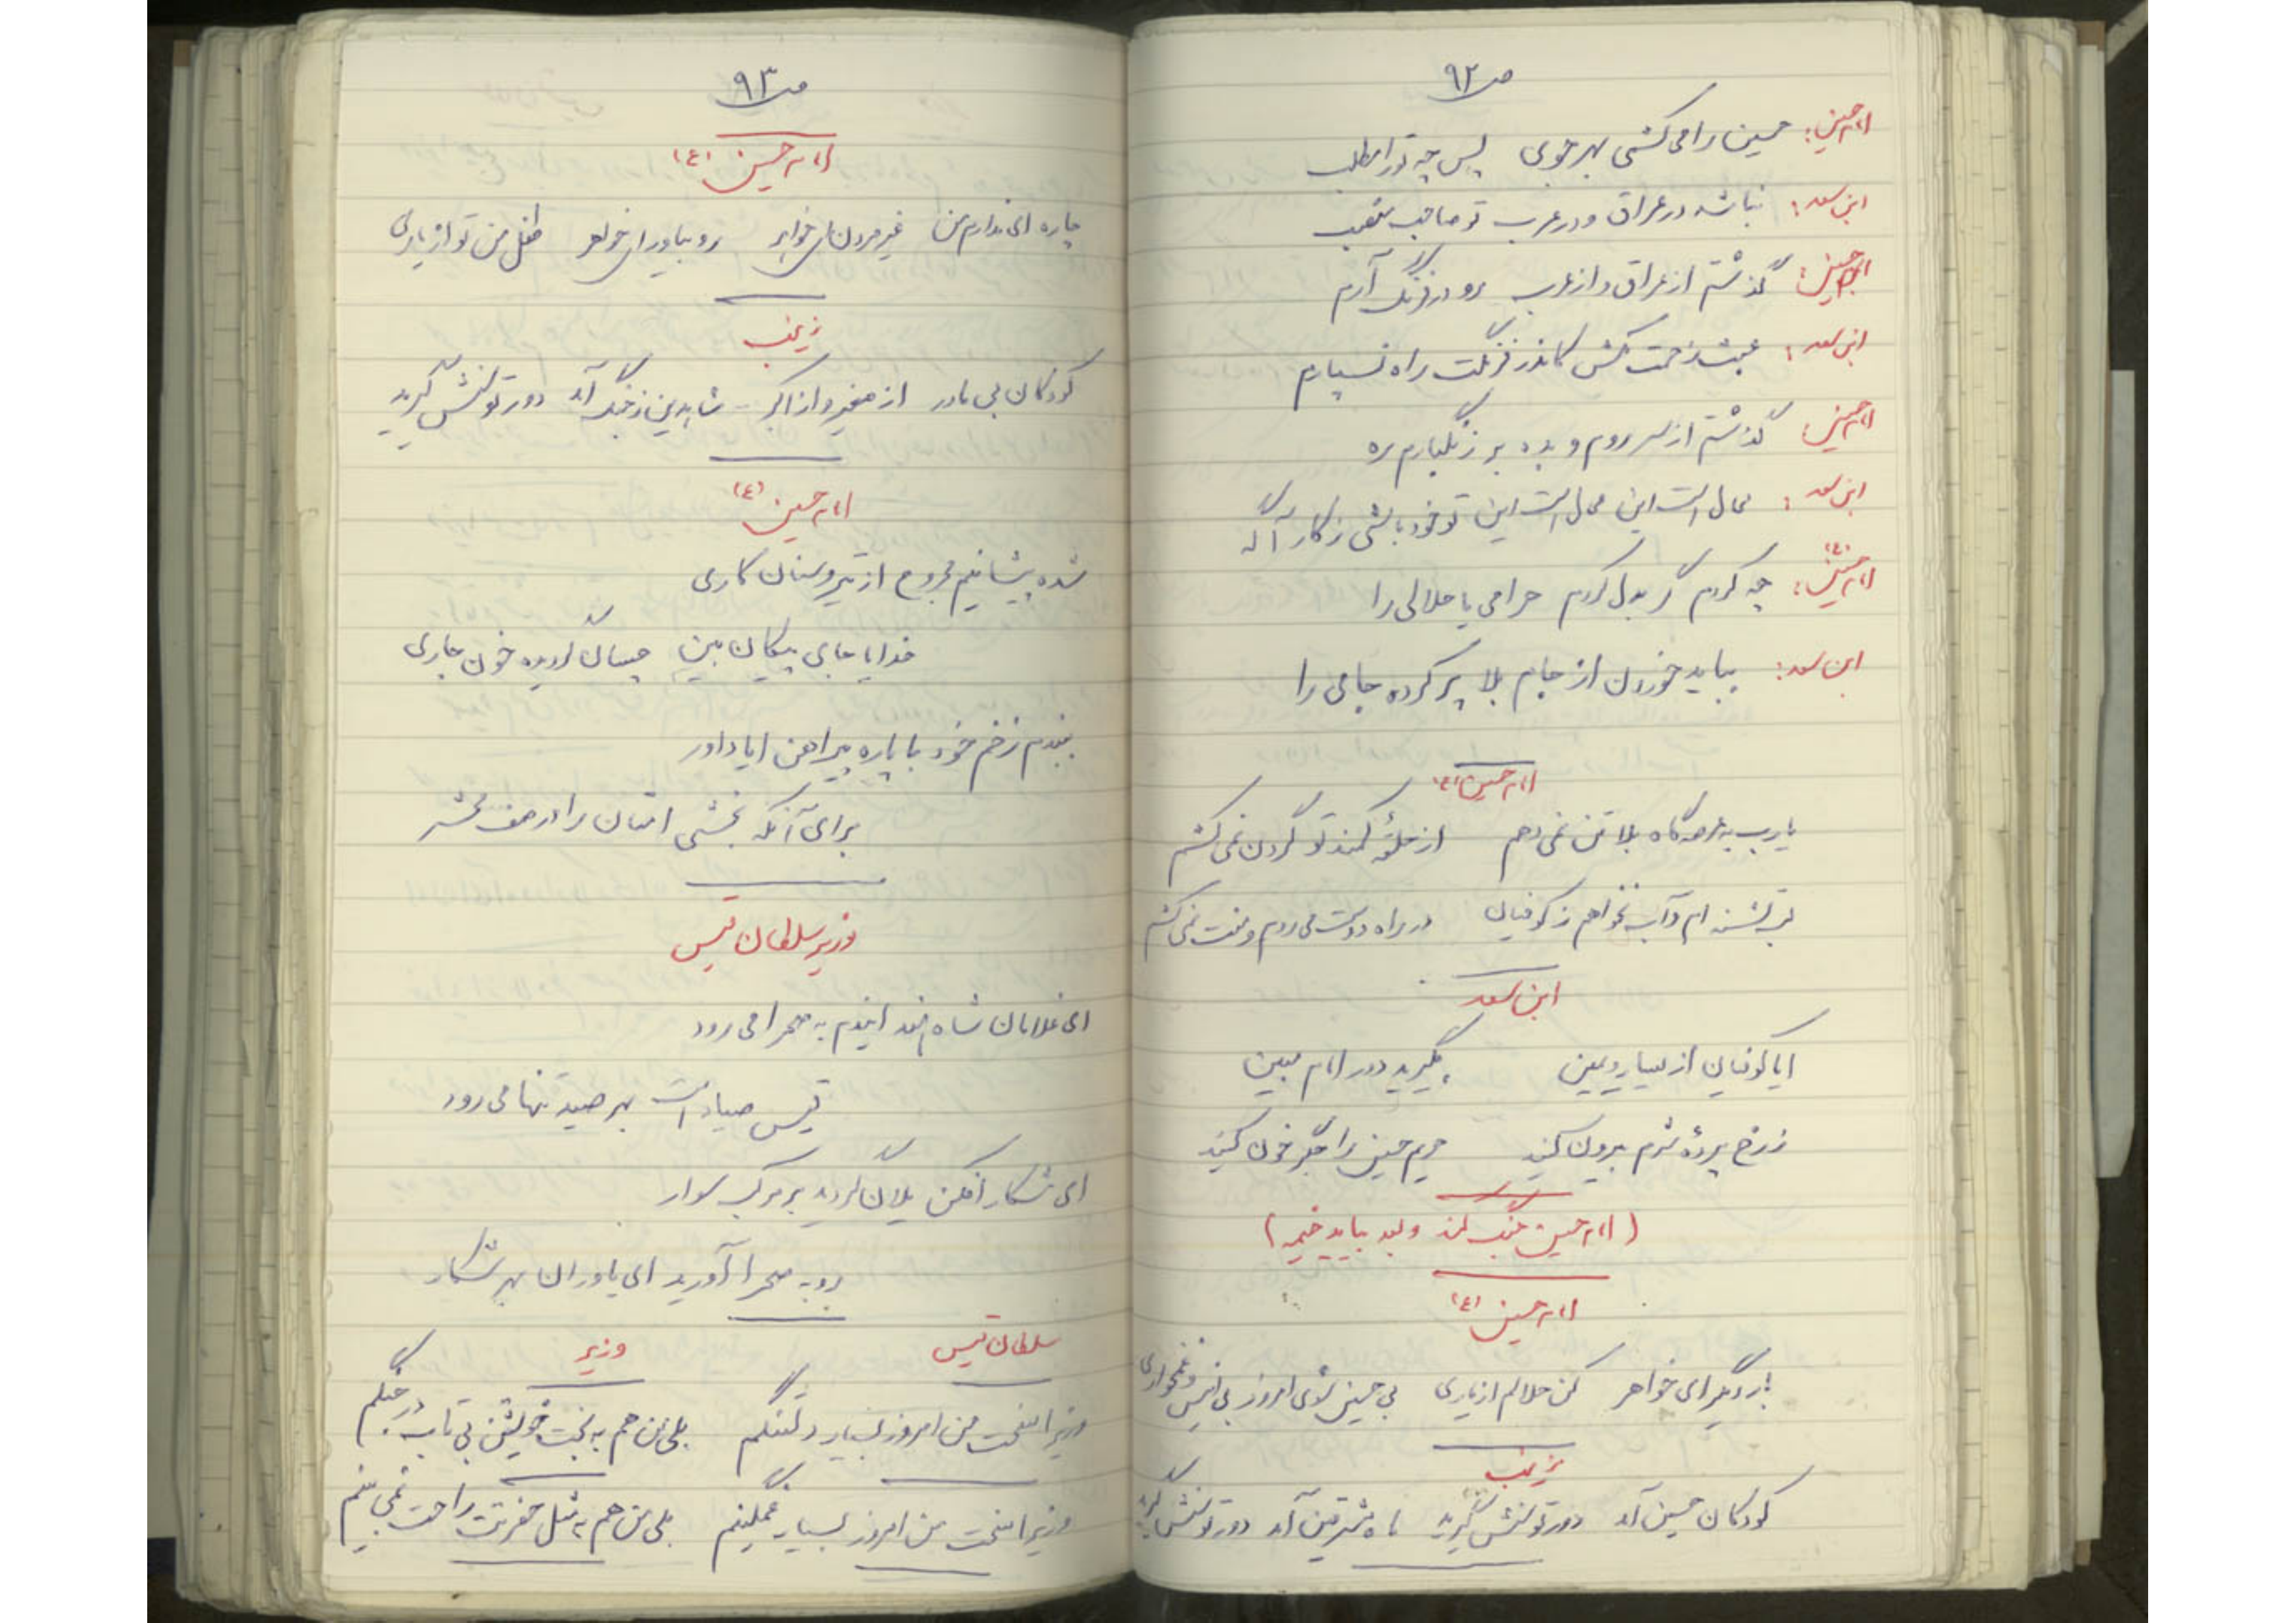 ص ۹۲
امام حسین: حسین را می کشی بهر چوبی پس چه تو را مطلب
ابن سعد: نباشد در عراق و در عرب تو صاحب منصب
امام حسین: گذشتم از عراق و از عرب رو در فرنگ آرم
ابن سعد: عبث زحمت مکش کاندر فرنگت راه نسپارم
امام حسین: گذشتم از سر روم و بده بر زنگبارم ره
ابن سعد: محال است این محال است این تو خود باشی ز کار آگه
امام حسین (ع): چه کردم گر بدل کردم حرامی یا حلالی را
ابن سعد: بباید خوردن از جام بلا پر کرده جامی را
امام حسین (ع)
یارب به عرصه گاه بلا تن نمی دهم از حلقهٔ کمند تو گردن نمی کشم
لب تشنه ام و آب نخواهم ز کوفیان در راه دوست می روم و منت نمی کشم
ابن سعد
ایا کوفیان از یسار و یمین بگیرید دور امام مبین
ز رخ پردهٔ شرم بیرون کنید حریم حسین را جگر خون کنید
(امام حسین جنگ کند و بعد بیاید خیمه)
امام حسین (ع)
بار دیگر ای خواهر کن حلالم از یاری بی حسین شوی امروز بی انیس و غمخواری
زینب
کودکان حسین آمد دور توسنش گیرید ماه مشرقین آمد دور توسنش گیرید
ص ۹۳
امام حسین (ع)
چاره ای ندارم من غیر مردن ای خواهر رو بیاور ای خواهر طفل من تو از یاری
زینب
کودکان بی مادر از صغیر و از اکبر شاه دین ز جنگ آمد دور توسنش گیرید
امام حسین (ع)
شده پیشانیم مجروح از تیر و سنان کاری
خدایا جای پیکان بین چسان گردیده خون جاری
ببندم زخم خود با پاره پیراهن ایا داور
برای آنکه بخشی امتان را در صف محشر
وزیر سلطان قیس
ای غلامان شاه هند ایندم به صحرا می رود
قیس صیاد است بهر صید تنها می رود
ای شکار افکن یلان گردید بر مرکب سوار
رو به صحرا آورید ای یاوران بهر شکار
سلطان قیس وزیر
وزیرا سخت من امروز بسیار دلتنگم بلی من هم به بخت خویشتن بی تاب در جنگم
وزیرا سخت من امروز بسیار غمگینم بلی من هم به مثل حضرتت راحت نمی بینم